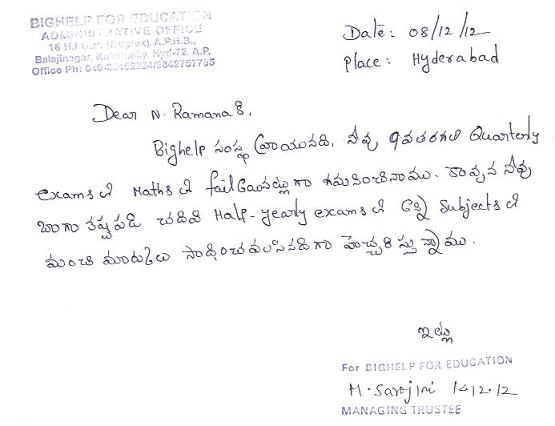 BIGHELP FOR EDUCATION
ADMINISTRATIVE OFFICE
16 H.I.G.H. (Duplex), A.P.H.B.,
Balajinagar, Kukatpally, Hyd-72. A.P.
Office Ph:
Date: 08/12/12
place: Hyderabad
Dear N. Ramana
Bighelp సంస్థ వ్రాయునది, నీవు 9వతరగతి Quarterly
exams లో Maths లో fail అయినట్లుగా గమనించినాము. కావున నీవు
బాగా కష్టపడి చదివి Half-yearly exams లో అన్ని Subjects లో
మంచి మార్కులు సాధించవలసినదిగా హెచ్చరిస్తున్నాము.
ఇట్లు
For BIGHELP FOR EDUCATION
M. Sarojini 14.12.12
MANAGING TRUSTEE